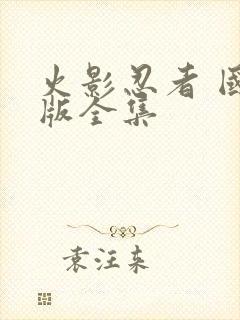 火影忍者 国
版全集
袁汪东